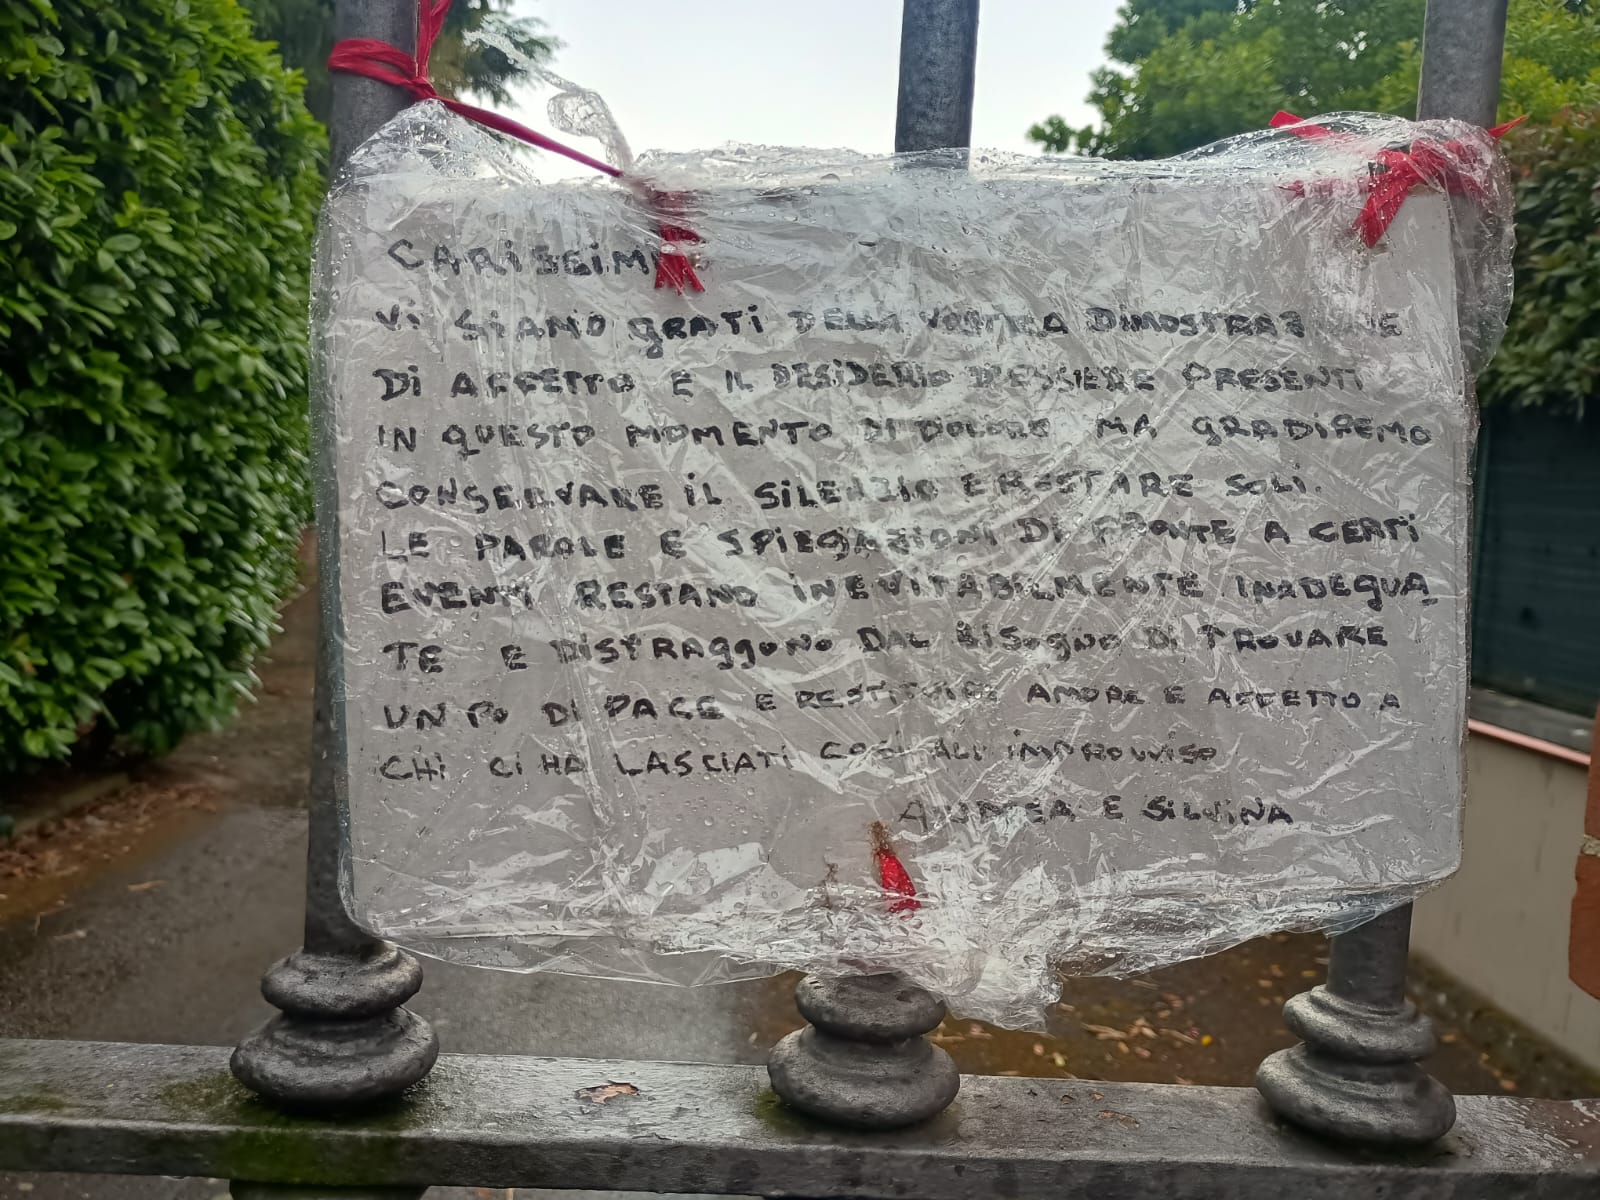 CARISSIMI
VI SIAMO GRATI DELLA VOSTRA DIMOSTRAZIONE
DI AFFETTO E IL DESIDERIO D'ESSERE PRESENTI
IN QUESTO MOMENTO DI DOLORE MA GRADIREMO
CONSERVARE IL SILENZIO E RESTARE SOLI.
LE PAROLE E SPIEGAZIONI DI FRONTE A CERTI
EVENTI RESTANO INEVITABILMENTE INADEGUA
TE E DISTRAGGONO DAL BISOGNO DI TROVARE
UN PO DI PACE E RESTITUIRE AMORE E AFFETTO A
CHI CI HA LASCIATI COSI ALL'IMPROVVISO
E SILVINA